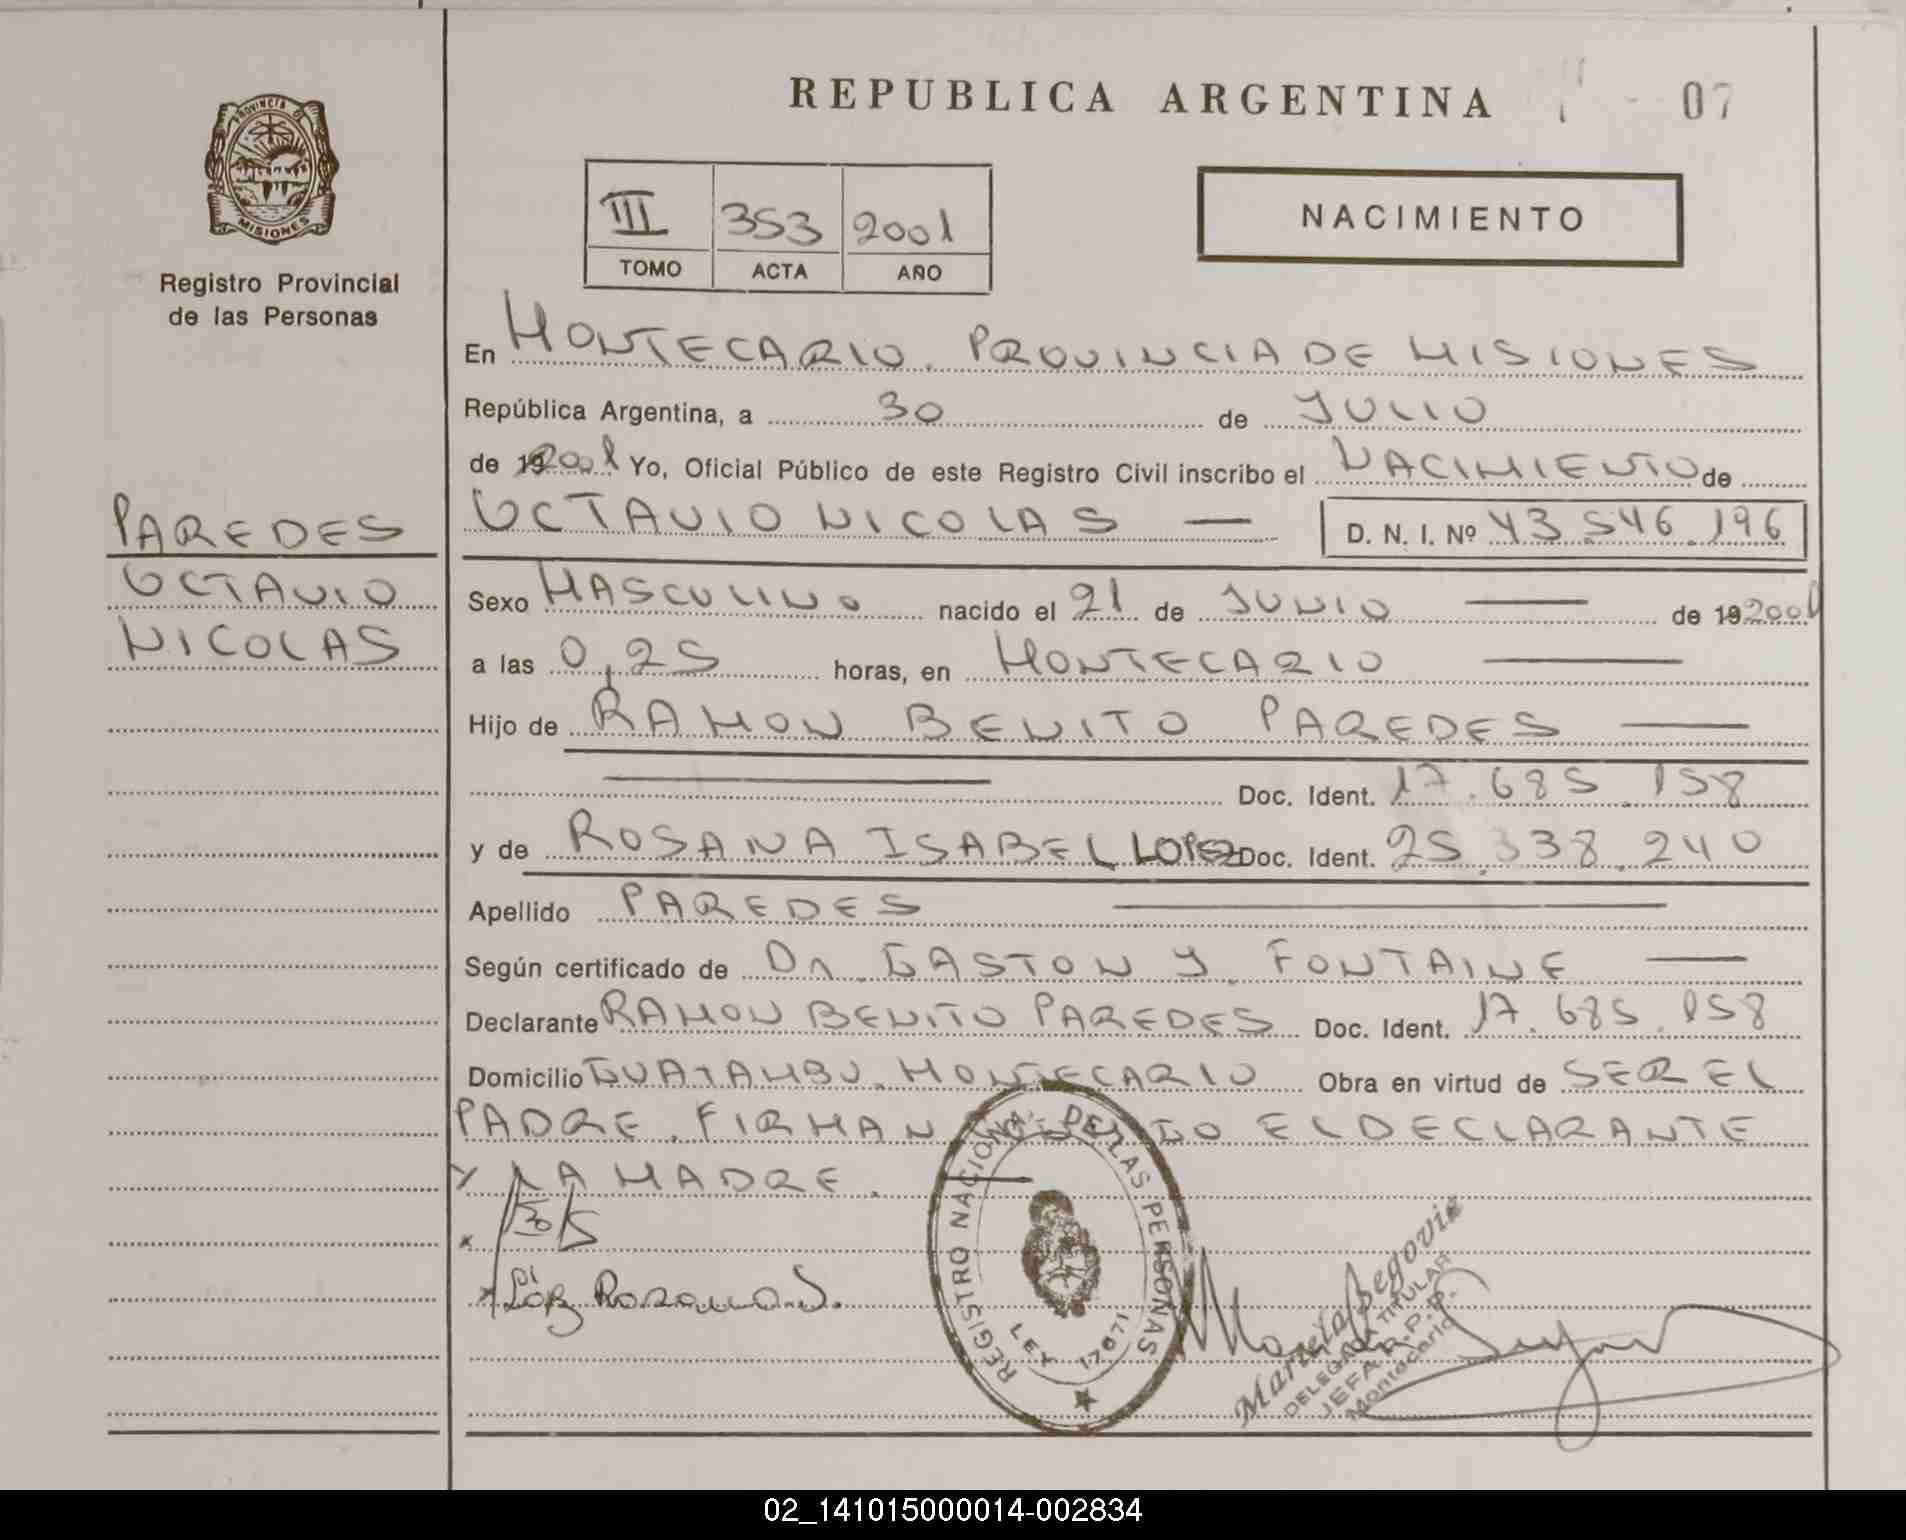 REPUBLICA ARGENTINA
07
PROVINCIA D
MISIONES
Registro Provincial
de las Personas
III 353 2001
TOMO ACTA AÑO
NACIMIENTO
En MONTECARLO. PROVINCIA DE MISIONES
República Argentina, a 30 de JULIO
de 192001 Yo, Oficial Público de este Registro Civil inscribo el NACIMIENTO de
OCTAVIO NICOLAS — D. N. I. Nº 43.546.196
PAREDES
OCTAVIO
NICOLAS
Sexo MASCULINO nacido el 21 de JUNIO — de 192001
a las 0,25 horas, en MONTECARLO —
Hijo de RAMON BENITO PAREDES —
— Doc. Ident. 17.685.158
y de ROSANA ISABEL LOPEZ Doc. Ident. 25.338.240
Apellido PAREDES —
Según certificado de Dr. GASTON Y. FONTAINE —
Declarante RAMON BENITO PAREDES Doc. Ident. 17.685.158
Domicilio GUATAMBU. MONTECARLO Obra en virtud de SER EL
PADRE. FIRMAN EL DECLARANTE
Y LA MADRE. —
REGISTRO NACIONAL DE LAS PERSONAS
LEY 17671
Mariela Begovia
DELEGADA TITULAR
JEFA R.P.P.
Montecarlo
02_141015000014-002834